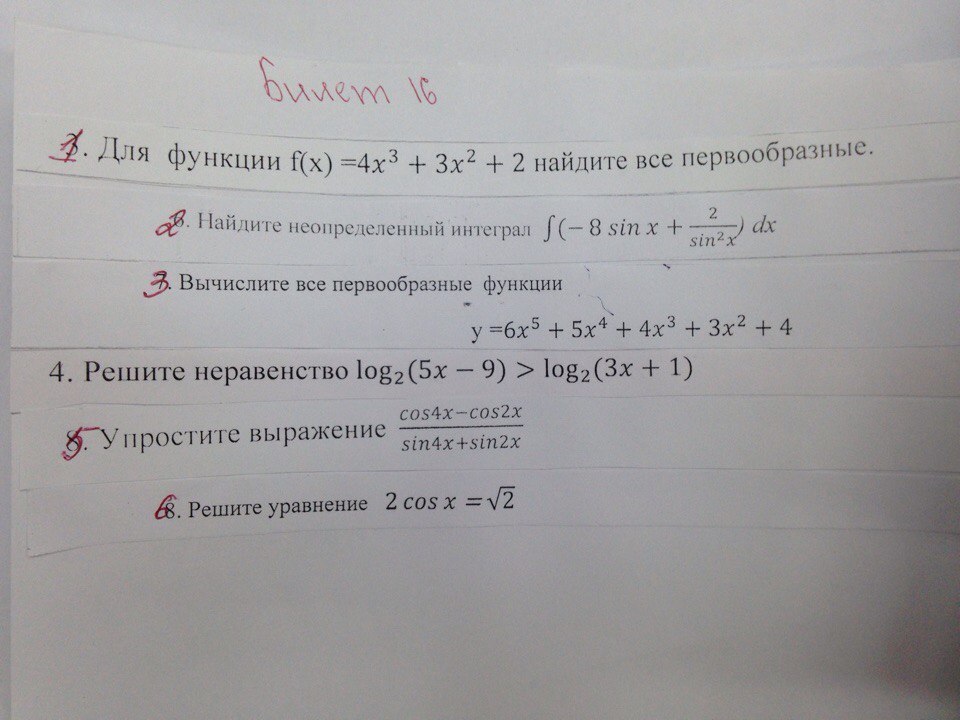 Билет 16
1. Для функции f(x) =4x³ + 3x² + 2 найдите все первообразные.
2. Найдите неопределенный интеграл ∫(− 8 sin x + 2/sin²x) dx
3. Вычислите все первообразные функции
y =6x⁵ + 5x⁴ + 4x³ + 3x² + 4
4. Решите неравенство log₂(5x − 9) > log₂(3x + 1)
5. Упростите выражение (cos4x−cos2x)/(sin4x+sin2x)
6. Решите уравнение 2 cos x =√2